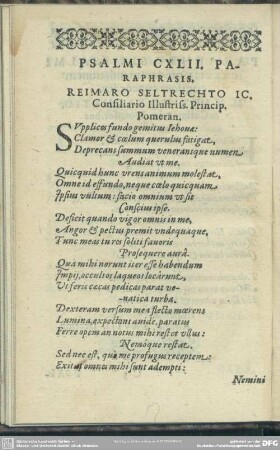 PSALMI CXLII. PA-
RAPHRASIS.
REIMARO SELTRECHTO IC.
Consiliario Illustriss. Princip.
Pomeran.
SVpplices fundo gemitus Iehouæ:
Clamor & cœlum querulus fatigat,
Deprecans summum veneransque numen
Audiat vt me.
Quicquid hunc vrens animum molestat,
Omne id effundo, neque cœlo quicquam
Ipsius vultum: facio omnium vt sit
Conscius ipse.
Deficit quando vigor omnis in me,
Angor & pectus premit vndequaque,
Tunc meas tu res soliti fauoris
Prosequere aura.
Qua mihi norunt iter esse habendum
Impij, occultos laqueos locarunt,
Vt feris cæcas pedicas parat ve-
natica turba.
Dexteram versum mea flecto mœrens
Lumina, expectans auide, paratus
Ferre opem an notus mihi restet vllus:
Nemóque restat.
Sed nec est, quò me profugus receptem:
Exitus omnes mihi sunt adempti:
Nemini